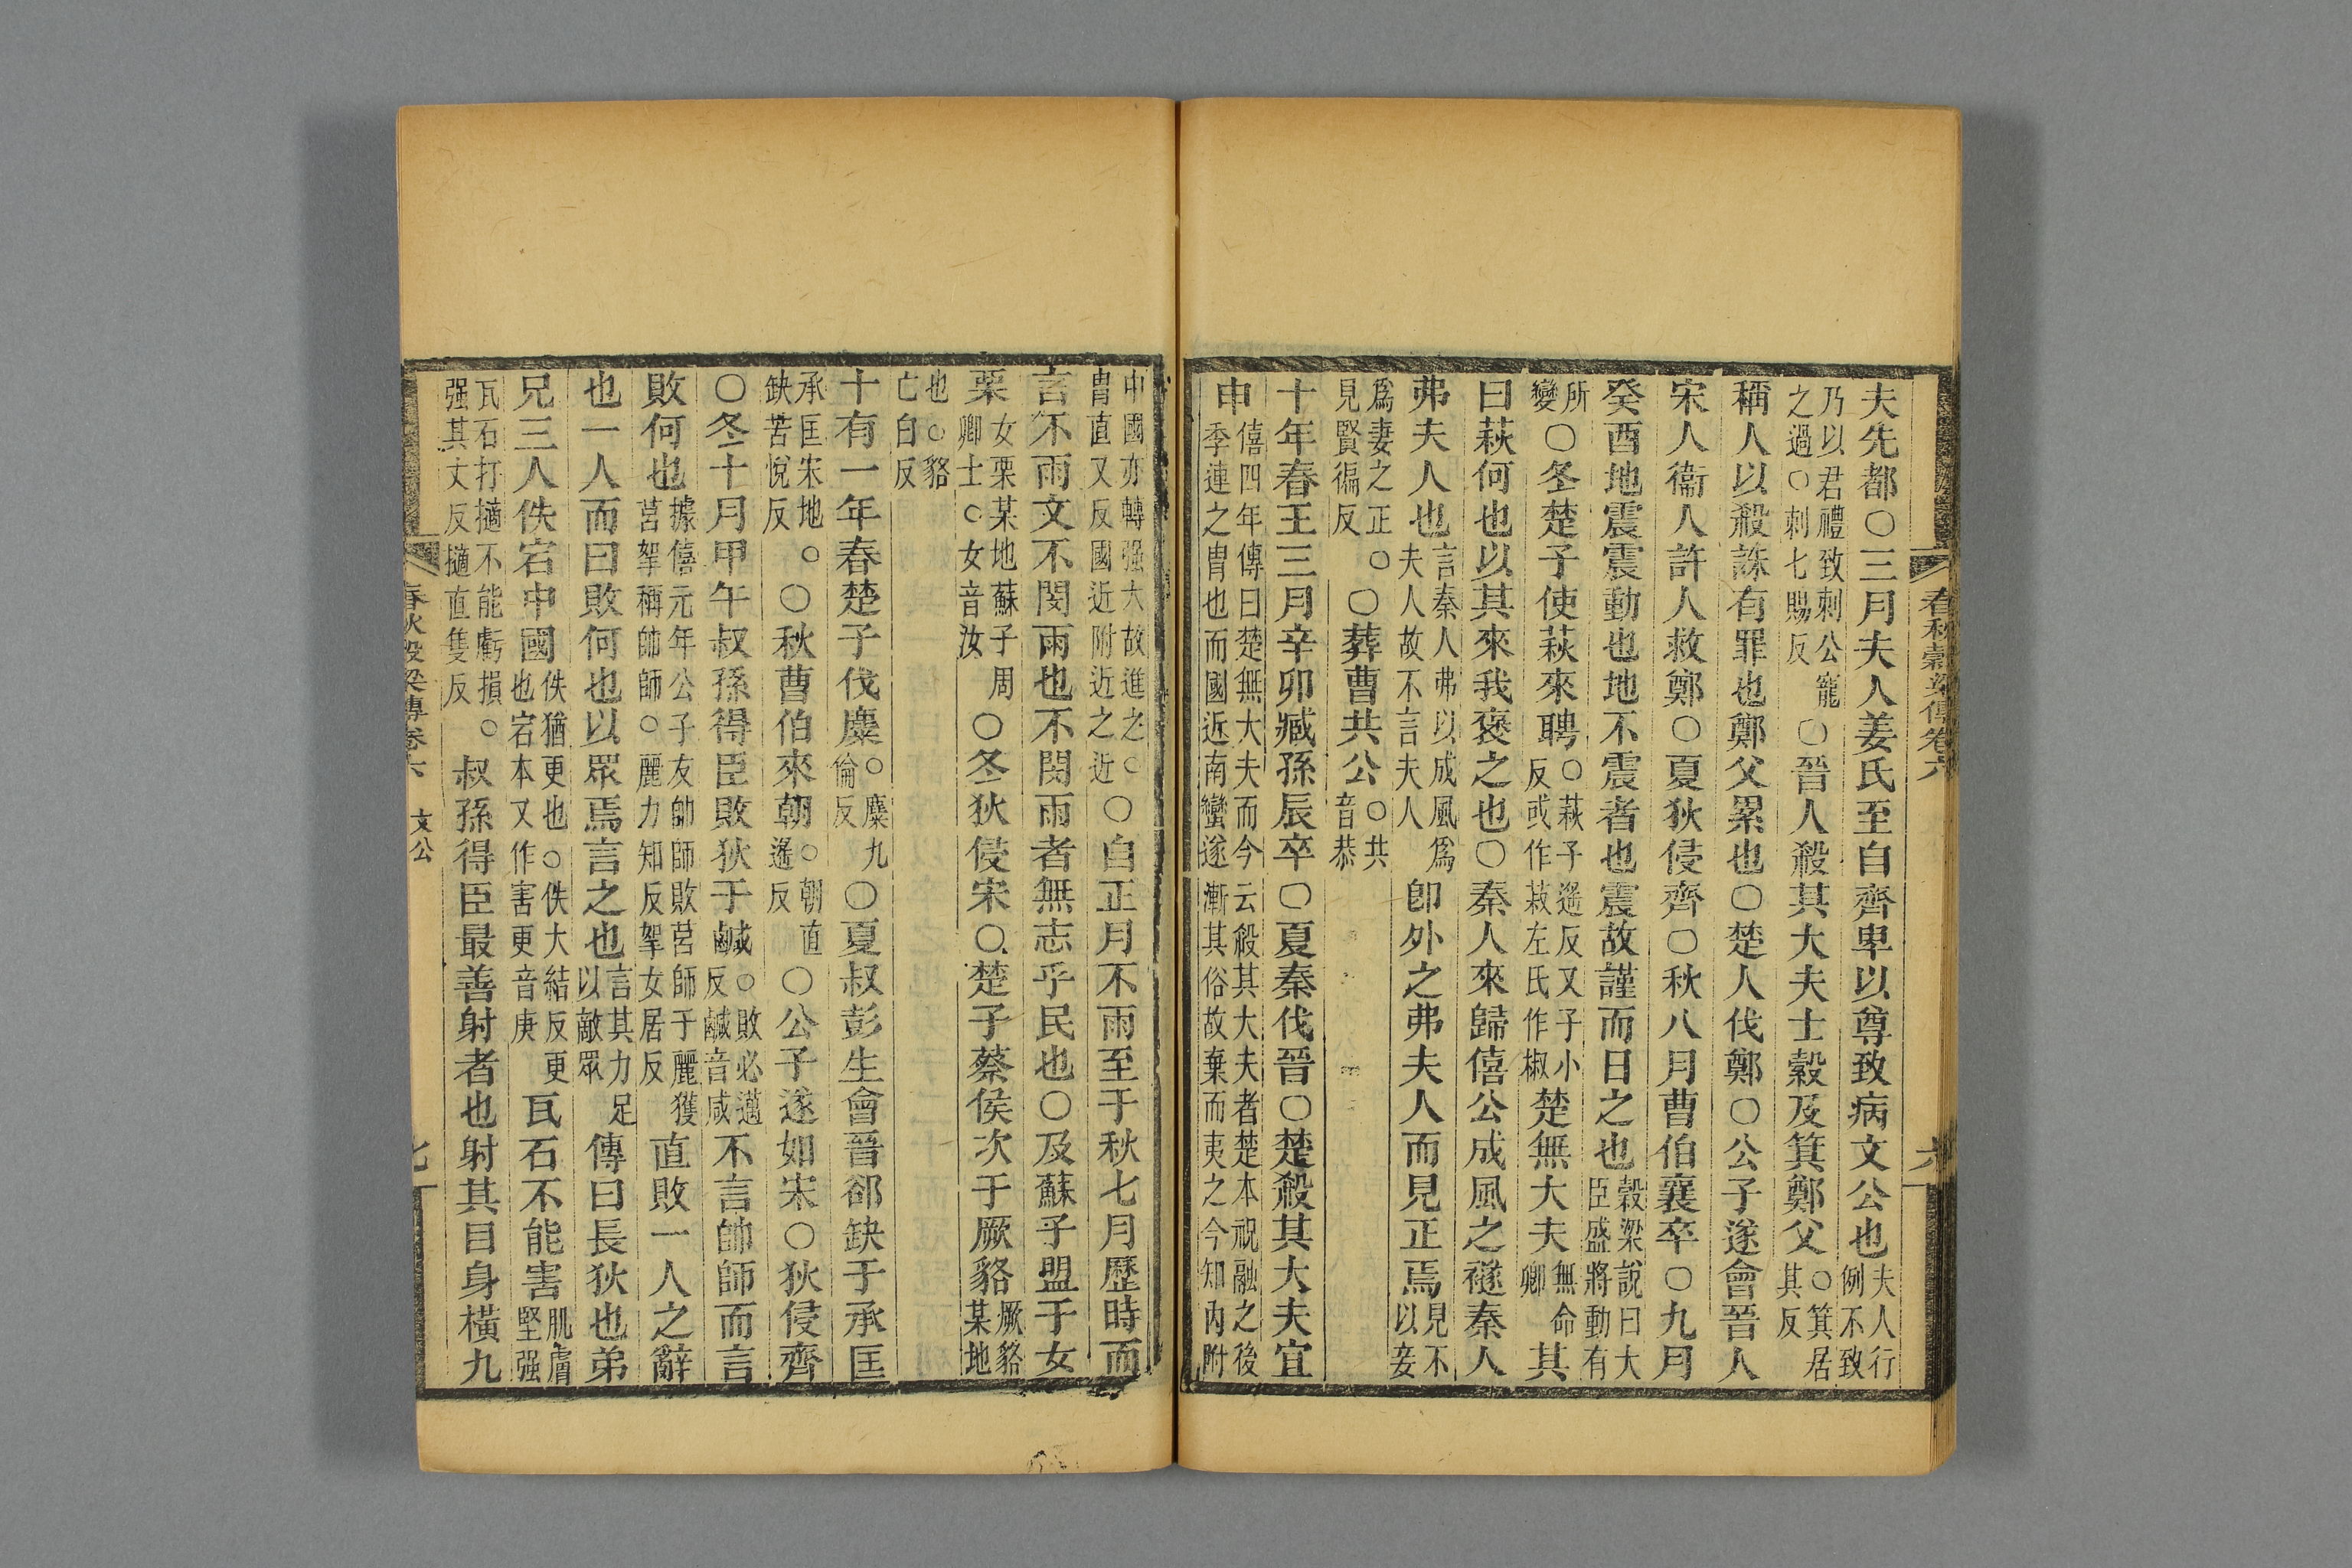 春秋穀梁傳卷六 六
夫先都○三月夫人姜氏至自齊卑以尊致病文公也夫人行例不致
乃以君禮致刺公寵之過○刺七賜反○晉人殺其大夫士穀及箕鄭父○箕居其反
稱人以殺誅有罪也鄭父累也○楚人伐鄭○公子遂會晉人
宋人衞人許人救鄭○夏狄侵齊○秋八月曹伯襄卒○九月
癸酉地震震動也地不震者也震故謹而日之也穀梁說曰大臣盛將動有
所變○冬楚子使萩來聘○萩子遙反又子小反或作菽左氏作椒楚無大夫無命卿其
曰萩何也以其來我褒之也○秦人來歸僖公成風之襚秦人
弗夫人也言秦人弗以成風爲夫人故不言夫人卽外之弗夫人而見正焉見不以妾
爲妻之正○見賢徧反○葬曹共公○共音恭
十年春王三月辛卯臧孫辰卒○夏秦伐晉○楚殺其大夫宜
申僖四年傳曰楚無大夫而今云殺其大夫者楚本祝融之後季連之胄也而國近南蠻遂漸其俗故棄而夷之今知內附
中國亦轉强大故進之○胄直又反國近附近之近○自正月不雨至于秋七月歷時而
言不雨文不閔雨也不閔雨者無志乎民也○及蘇子盟于女
栗女栗某地蘇子周卿士○女音汝○冬狄侵宋○楚子蔡侯次于厥貉厥貉某地
也○貉亡白反
十有一年春楚子伐麋○麋九倫反○夏叔彭生會晉郤缺于承匡
承匡宋地○缺苦悅反○秋曹伯來朝○朝直遙反○公子遂如宋○狄侵齊
○冬十月甲午叔孫得臣敗狄于鹹○敗必邁反鹹音咸不言帥師而言
敗何也據僖元年公子友帥師敗莒師于麗獲莒挐稱帥師○麗力知反挐女居反直敗一人之辭
也一人而曰敗何也以眾焉言之也言其力足以敵眾傳曰長狄也弟
兄三人佚宕中國佚猶更也○佚大結反更也宕本又作害更音庚瓦石不能害肌膚堅强
瓦石打擿不能虧損○强其丈反擿直隻反叔孫得臣最善射者也射其目身橫九
春秋穀梁傳卷六 文公 七